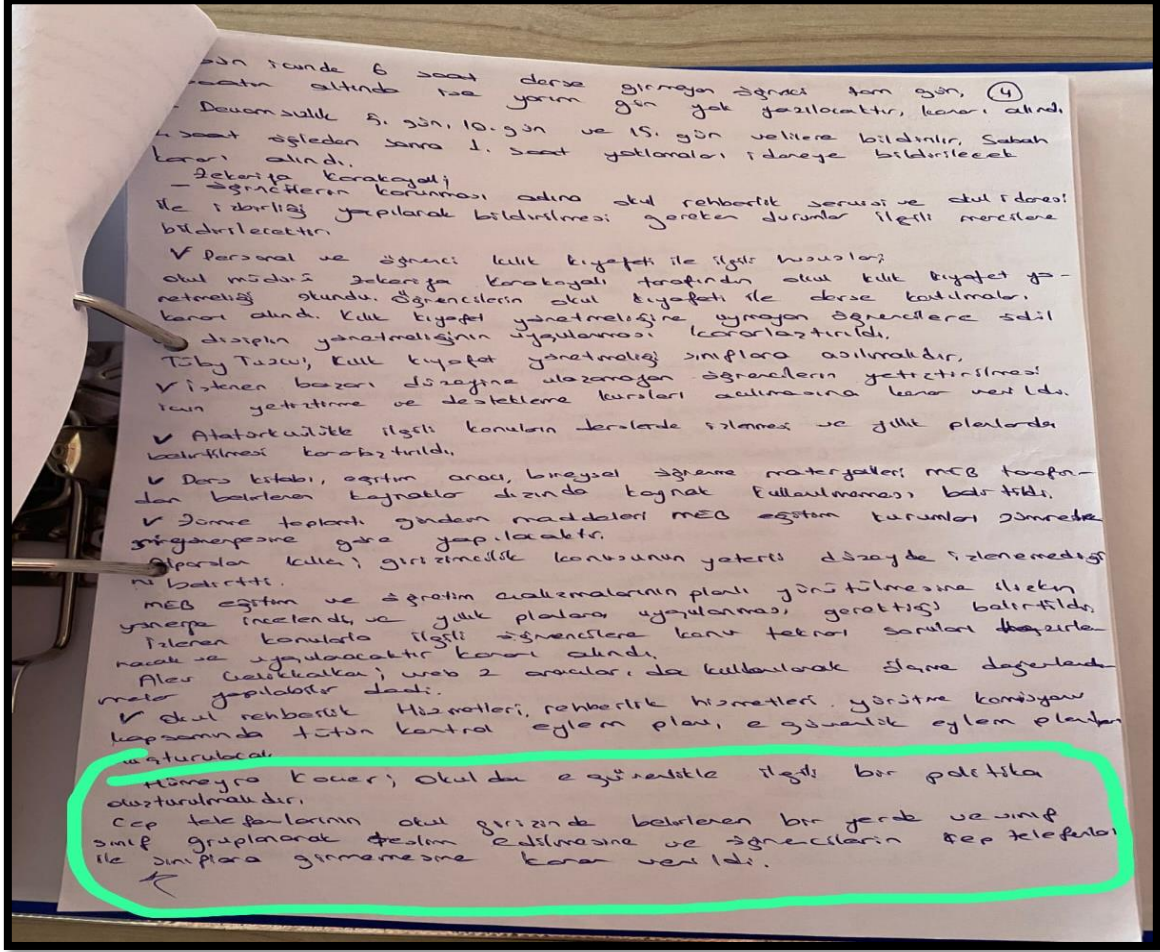 içinde 6 saat derse girmeyen öğrenci tam gün, 4
saatin altında ise yarım gün yok yazılacaktır, kararı alındı.
- Devamsızlık 5. gün, 10. gün ve 15. gün velilere bildirilir, Sabah
1. saat öğleden sonra 1. saat yoklamaları idareye bildirilecek
kararı alındı.
Zekeriya Karakayalı;
- Öğrencilerin korunması adına okul rehberlik servisi ve okul idaresi
ile işbirliği yapılarak bildirilmesi gereken durumlar ilgili mercilere
bildirilecektir.
✓ Personel ve öğrenci kılık kıyafeti ile ilgili hususlar;
okul müdürü Zekeriya Karakayalı tarafından okul kılık kıyafet yö-
netmeliği okundu. Öğrencilerin okul kıyafeti ile derse katılmaları
kararı alındı. Kılık kıyafet yönetmeliğine uymayan öğrencilere ödül
disiplin yönetmeliğinin uygulanması kararlaştırıldı.
kılık kıyafet yönetmeliği sınıflara asılmalıdır.
✓ İstenen başarı düzeyine ulaşamayan öğrencilerin yetiştirilmesi
için yetiştirme ve destekleme kursları açılmasına karar verildi.
✓ Atatürkçülükle ilgili konuların derslerde işlenmesi ve yıllık planlarda
belirtilmesi kararlaştırıldı.
✓ Ders kitabı, eğitim aracı, bireysel öğrenme materyalleri MEB tarafın-
dan belirlenen kaynaklar dışında kaynak kullanılmaması belirtildi.
✓ Zümre toplantı gündem maddeleri MEB eğitim kurumları
göre yapılacaktır.
Alparslan girişimcilik konusunun yeterli düzeyde işlenemediği
ni belirtti.
MEB eğitim ve öğretim çalışmalarının planlı yürütülmesine ilişkin
yönerge incelendi, ve yıllık planlara uygulanması gerektiği belirtildi.
İzlenen konularla ilgili öğrencilere konu tekrarı soruları hazırla-
nacak ve uygulanacaktır kararı alındı.
Alev web 2 araçları da kullanılarak ölçme değerlendir-
meler yapılabilir dedi.
✓ Okul rehberlik Hizmetleri, rehberlik hizmetleri yürütme komisyonu
kapsamında tütün kontrol eylem planı, e güvenlik eylem planları
oluşturulacak
Hümeyra Koçer; Okulda e güvenlikle ilgili bir politika
oluşturulmalıdır.
Cep telefonlarının okul girişinde belirlenen bir yerde ve sınıf
sınıf gruplanarak teslim edilmesine ve öğrencilerin cep telefonları
ile sınıflara girmemesine karar verildi.